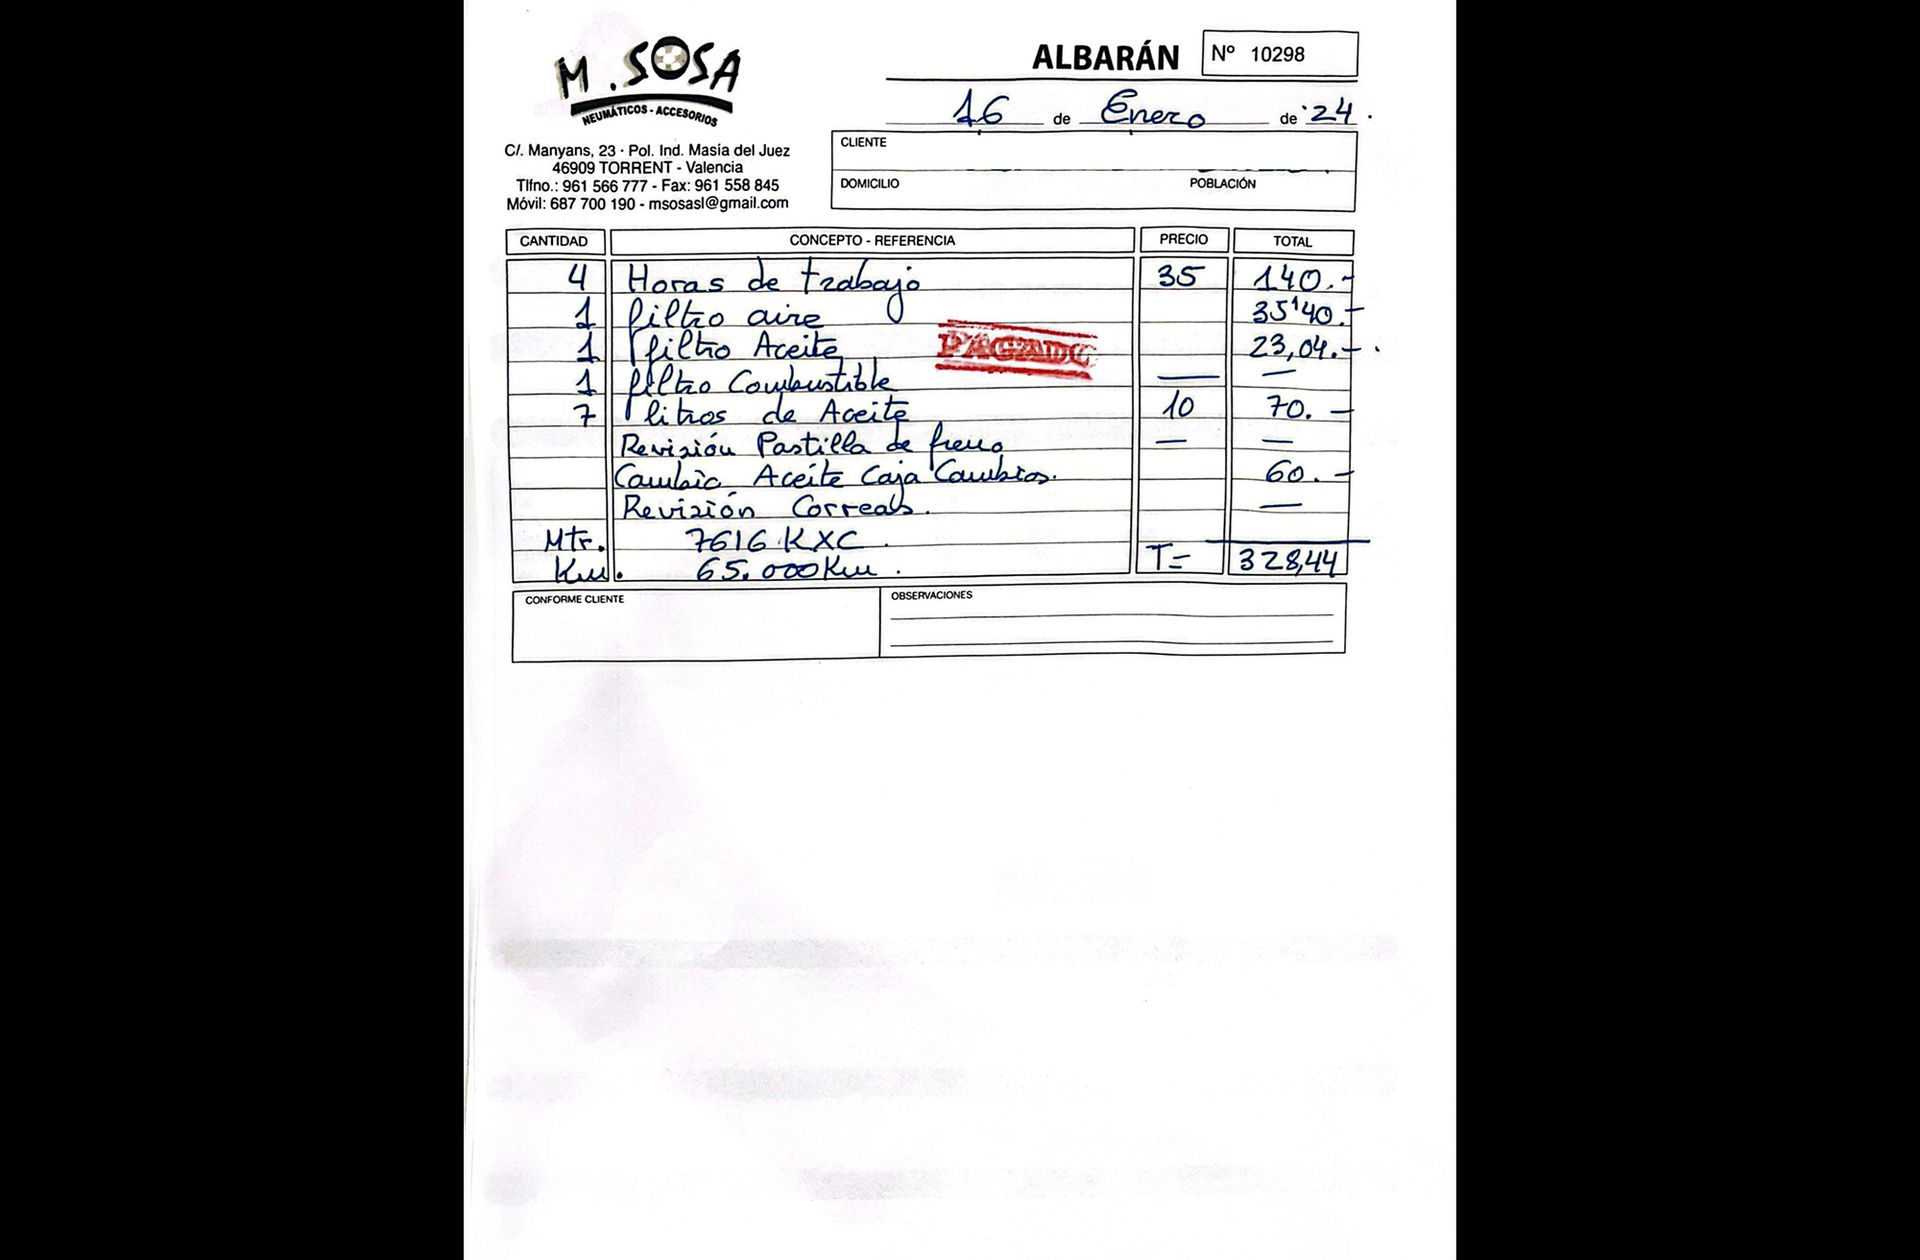 M. SOSA
NEUMÁTICOS - ACCESORIOS
C/. Manyans, 23 · Pol. Ind. Masía del Juez
46909 TORRENT - Valencia
Tlfno.: 961 566 777 - Fax: 961 558 845
Móvil: 687 700 190 - msosasl@gmail.com
ALBARÁN Nº 10298
16 de Enero de 24.
CLIENTE
DOMICILIO POBLACIÓN
CANTIDAD CONCEPTO - REFERENCIA PRECIO TOTAL
4 Horas de trabajo 35 140.-
1 filtro aire 35'40.-
1 filtro Aceite 23,04.-.
PAGADO
1 filtro Combustible — —
7 litros de Aceite 10 70. -
Revisión Pastilla de freno — —
Cambio Aceite Caja Cambios. 60. -
Revisión Correas. —
Mtr. 7616 KXC.
Km. 65.000 Km. T= 328,44
CONFORME CLIENTE OBSERVACIONES